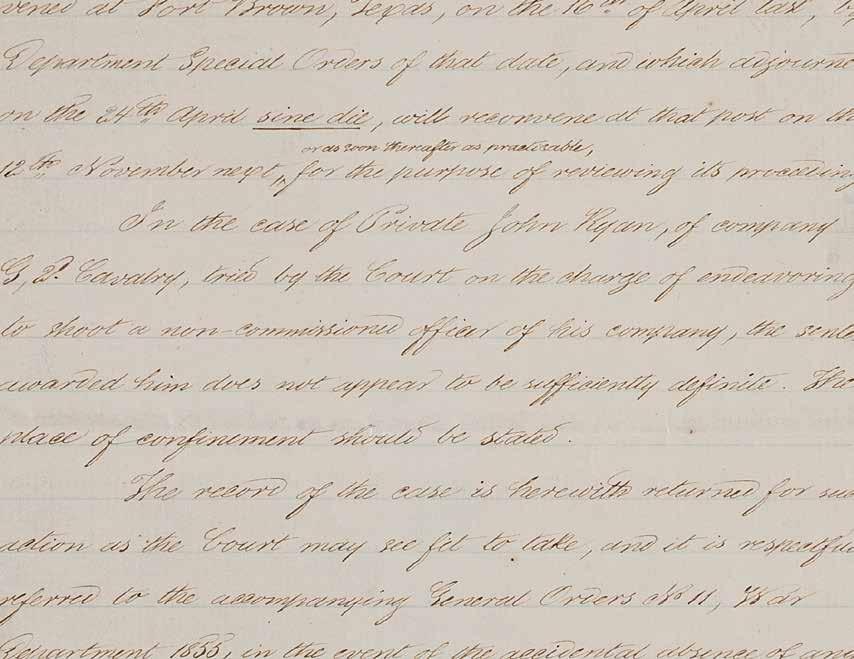 vened at Fort Brown, Texas, on the 16th of April last, by
Department Special Orders of that date, and which adjourne
on the 24th April sine die, will reconvene at that post on th
or as soon thereafter as practicable,
12th November next, for the purpose of reviewing its proceeding
In the case of Private John Ryan, of company
G, 2d Cavalry, tried by the Court on the charge of endeavoring
to shoot a non-commissioned officer of his company, the sente
awarded him does not appear to be sufficiently definite. The
place of confinement should be stated.
The record of the case is herewith returned for suc
action as the Court may see fit to take, and it is respectfu
referred to the accompanying General Orders No 11, War
Department 1855, in the event of the accidental absence of any